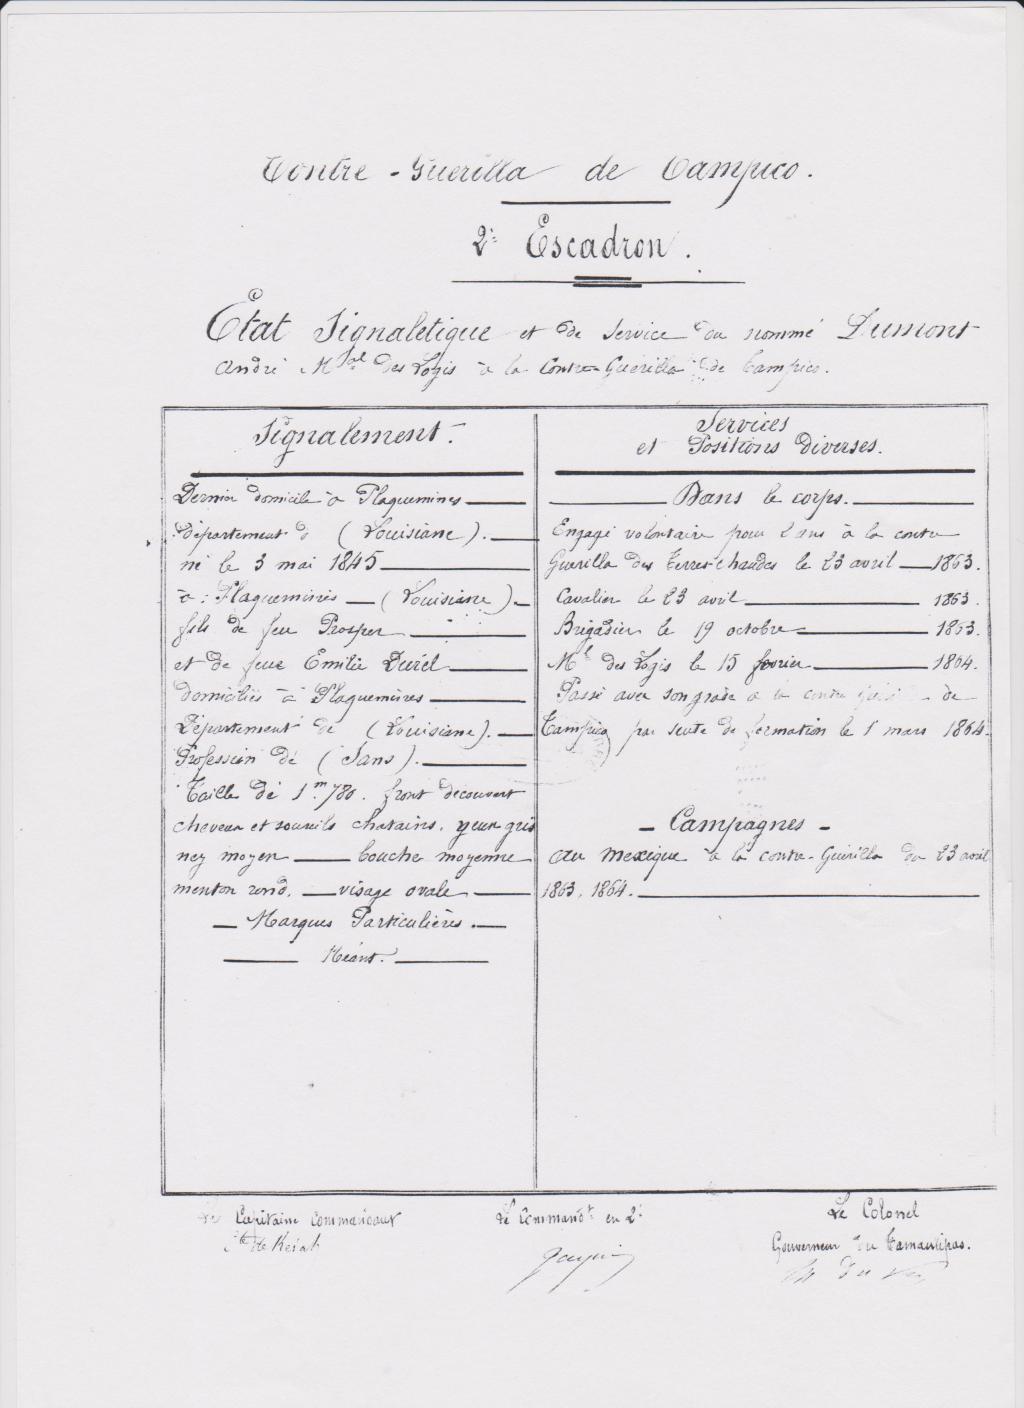 Contre-Guerilla de Tampico.
2e Escadron.
Etat Signaletique et de Service du nommé Dumont
André Mal des Logis à la Contre-Guérilla de Tampico.
Signalement.
Dernier domicile à Plaquemines
département d (Louisiane).
né le 3 mai 1845
à : Plaquemines (Louisiane)
fils de feu Prosper
et de feue Emilie Durél
domiciliés à Plaquemines
Département de (Louisiane).
Profession de (Sans).
Taille de 1m.780. front découvert
cheveux et sourcils chatains. yeux gris
nez moyen bouche moyenne
menton rond. visage ovale
- Marques Particulières. -
Néant.
Services
et Positions Diverses.
Dans le corps.
Engagé volontaire pour 2 ans à la contre
Guerilla des Terres-chaudes le 23 avril 1863.
Cavalier le 23 avril 1863.
Brigadier le 19 octobre 1863.
Ml des Logis le 15 fevrier 1864.
Passé avec son grade à la contre de
Tampico par suite de formation le 1 mars 1864.
- Campagnes -
au mexique à la contre-Guérilla du 23 avril
1863, 1864.
Le Capitaine Commandant
Le Commandt en 2e
Le Colonel
Gouverneur du Tamaulipas.